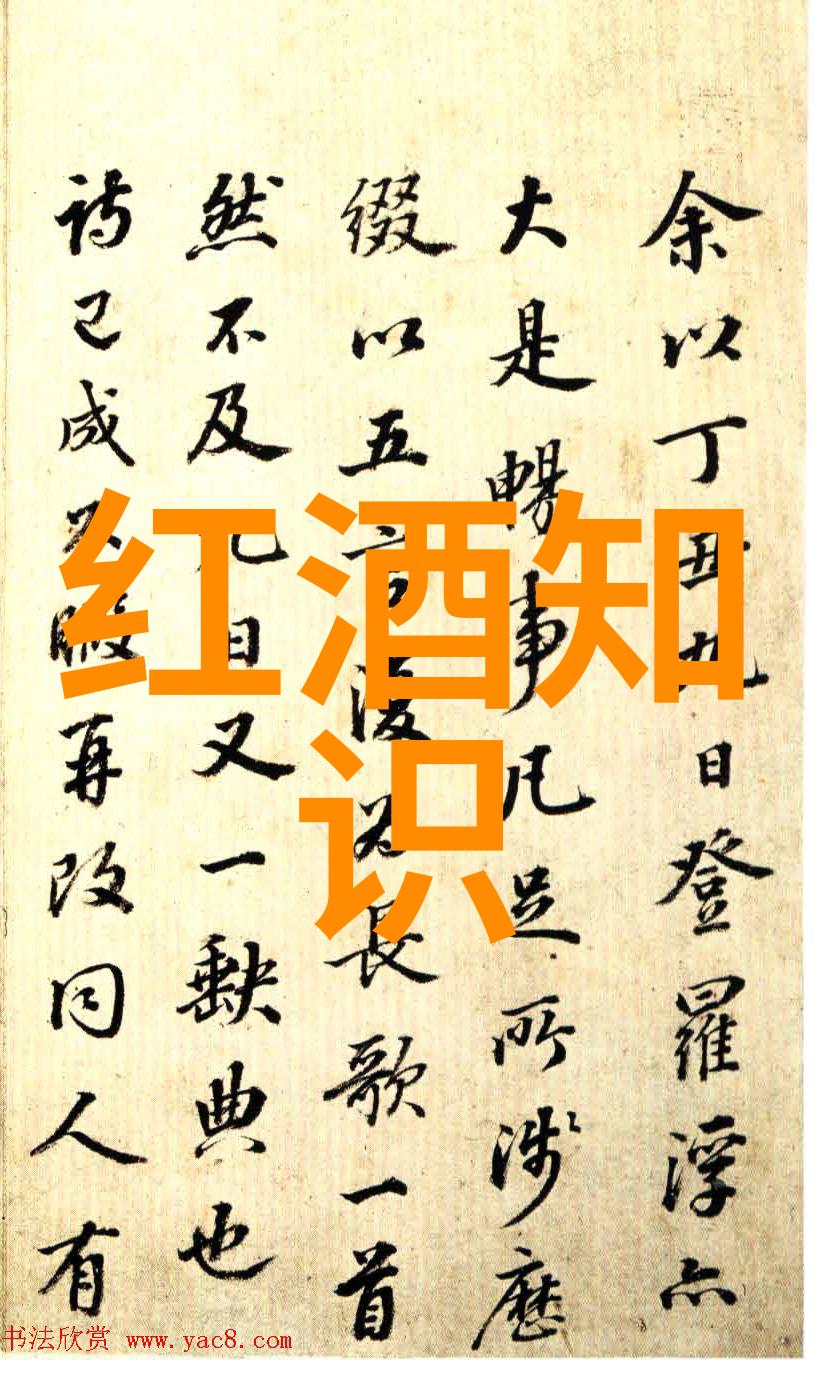 余以丁丑九日登羅浮亦
大是暢事凡足所涉歷
綴以五復為長歌一首
然不及日又一缺典也
詩已成不暇再改同人有
红酒知
识
书法欣赏 www.yac8.com